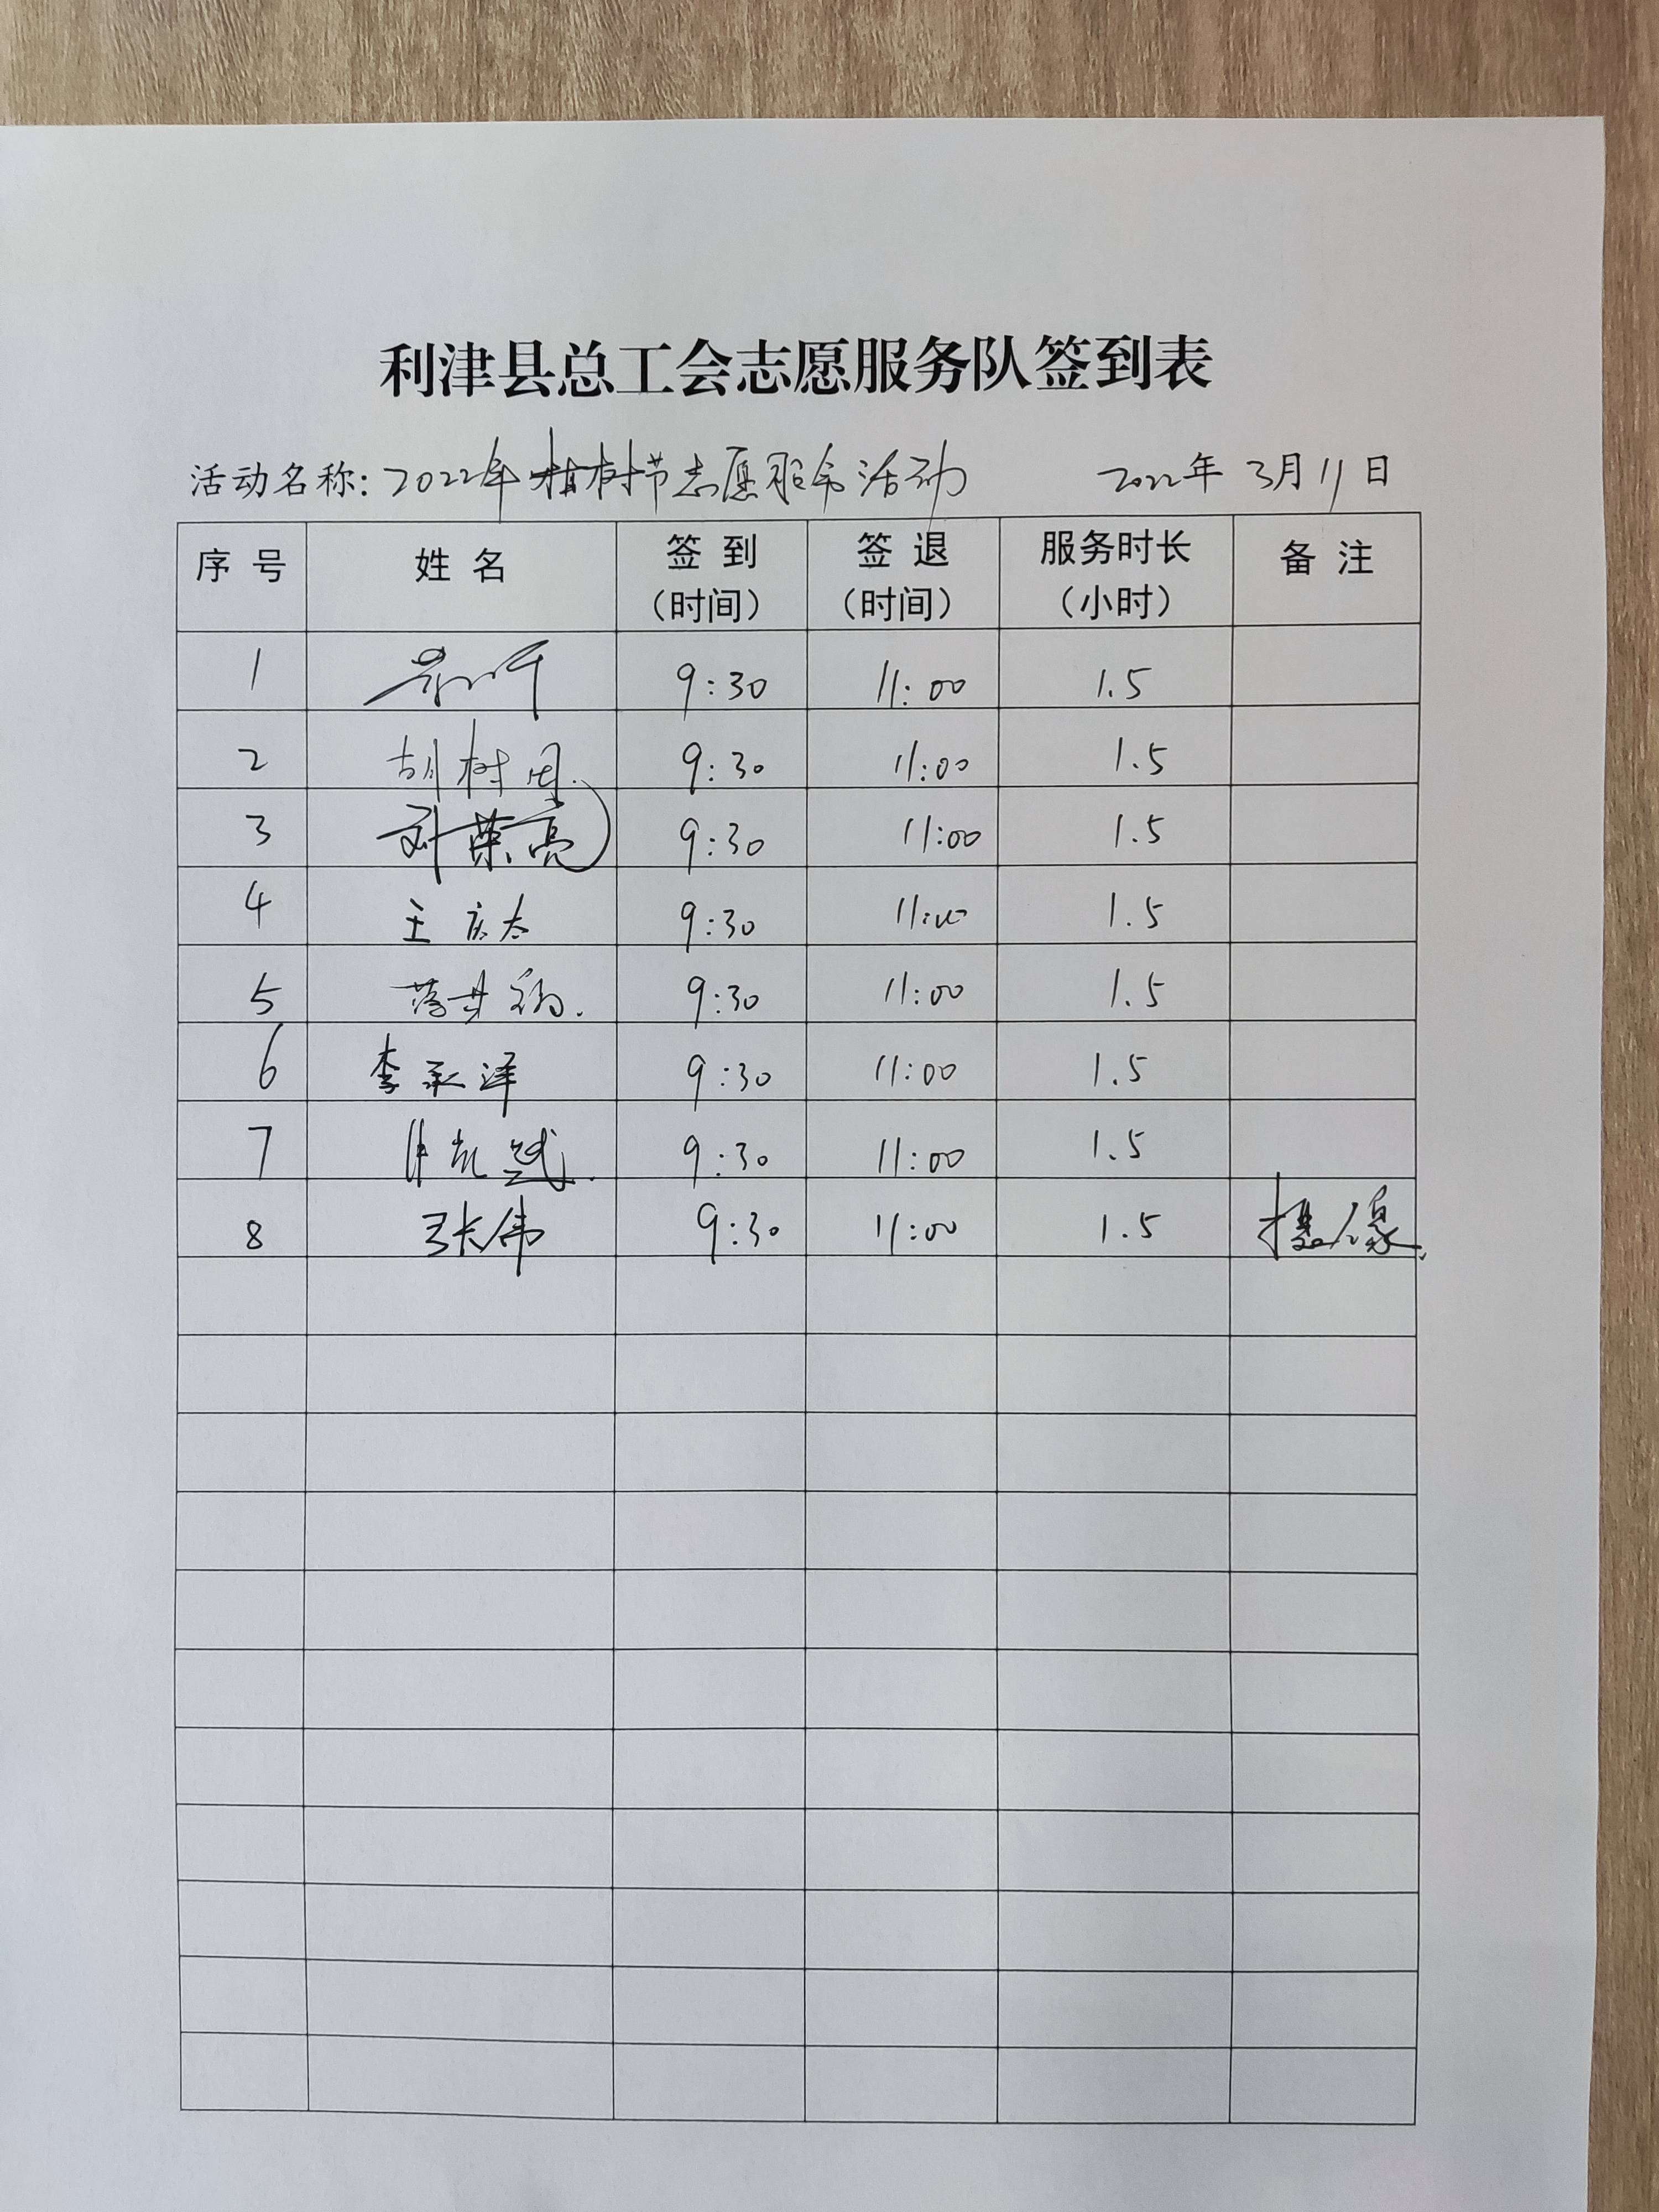 利津县总工会志愿服务队签到表
活动名称: 2022年植树节志愿服务活动 2022年 3月 11日
序号 姓名 签到（时间） 签退（时间） 服务时长（小时） 备注
1 9:30 11:00 1.5
2 胡树国 9:30 11:00 1.5
3 刘荣亮 9:30 11:00 1.5
4 王庆太 9:30 11:00 1.5
5 9:30 11:00 1.5
6 李承泽 9:30 11:00 1.5
7 9:30 11:00 1.5
8 张伟 9:30 11:00 1.5 摄像